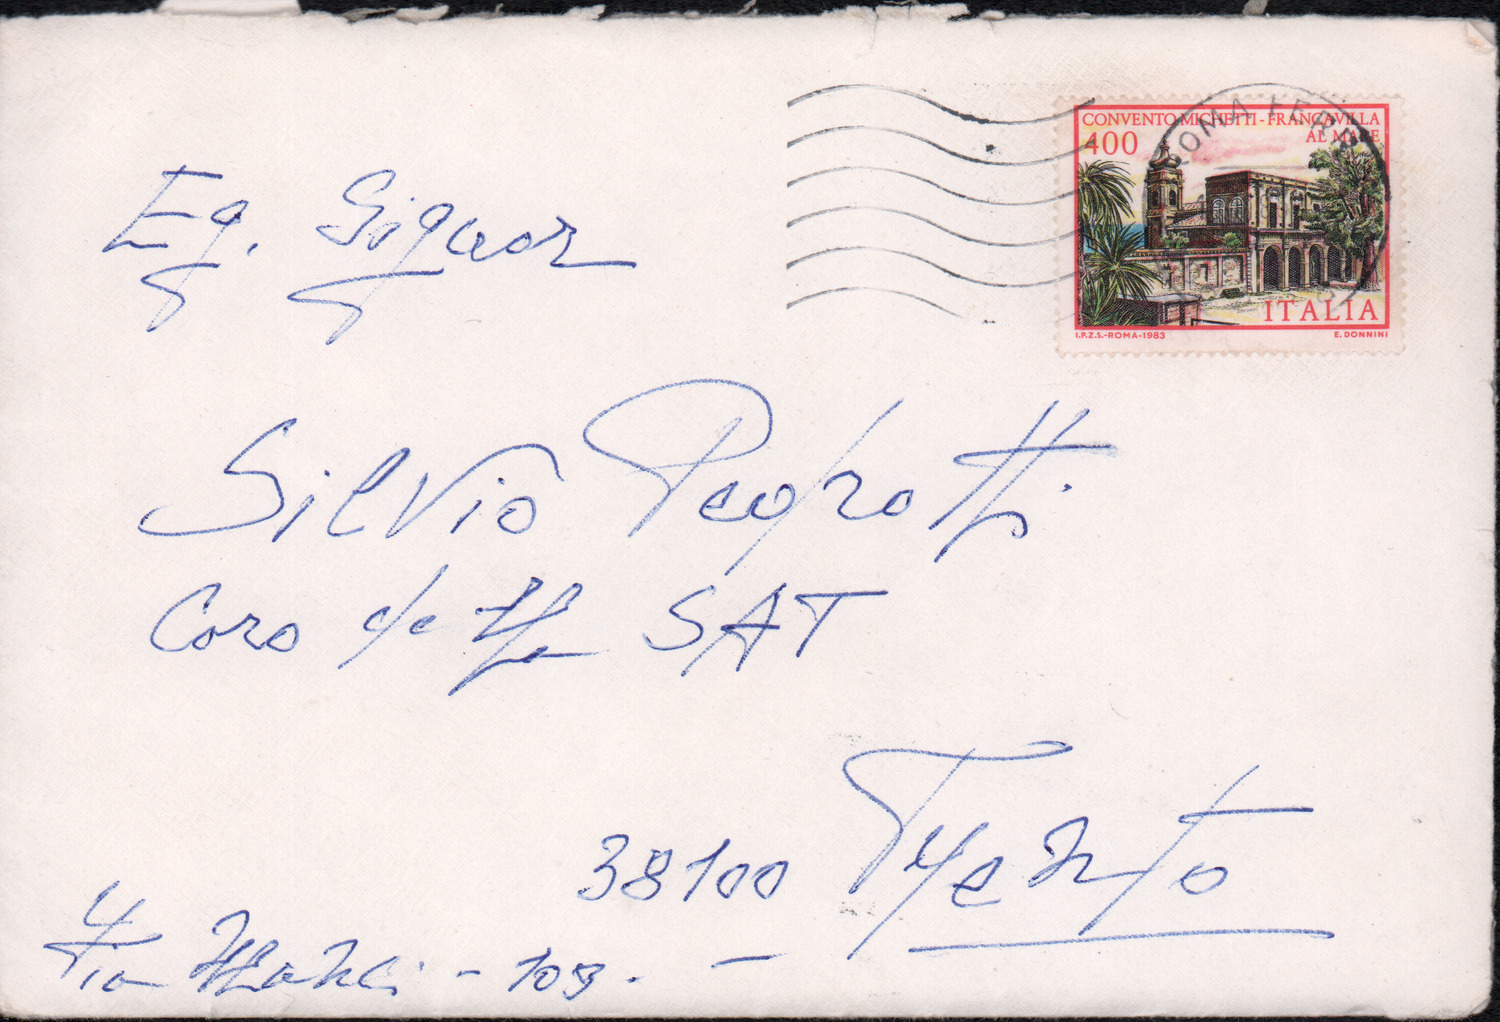 ROMA FERR
CONVENTO MICHETTI-FRANCAVILLA
AL MARE
400
ITALIA
I.P.Z.S.-ROMA-1983 E.DONNINI
Eg. Signor
Silvio Pedrotti
Coro della SAT
38100 Trento
Via - 103. -